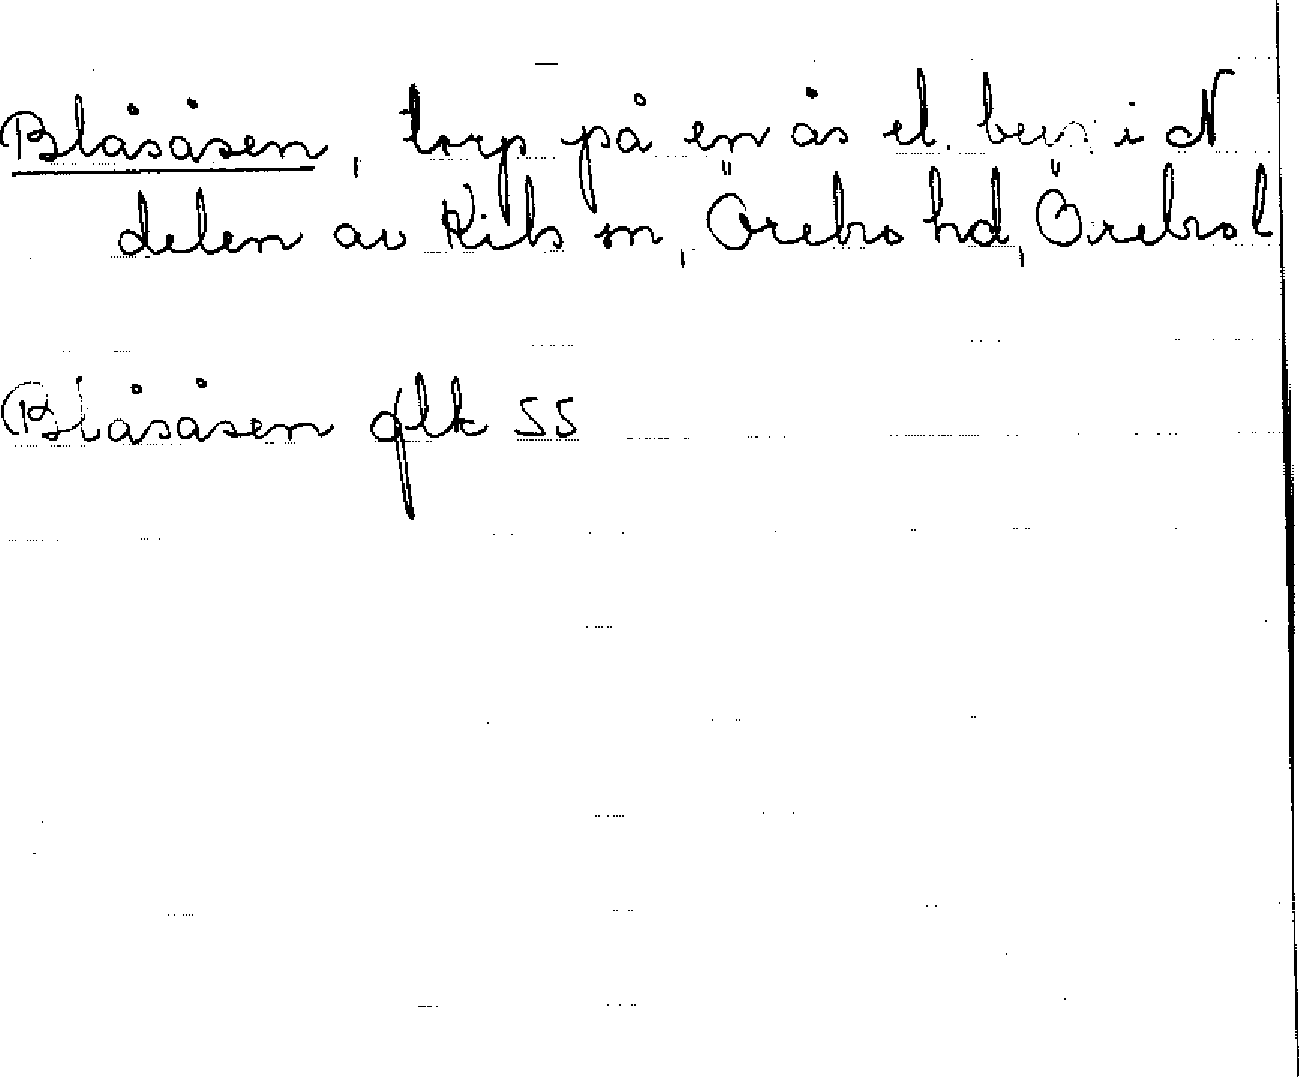 Blåsåsen, torp på en ås el. i N
delen av Kils sn, Örebro hd, Örebro l
Blåsåsen glk 55